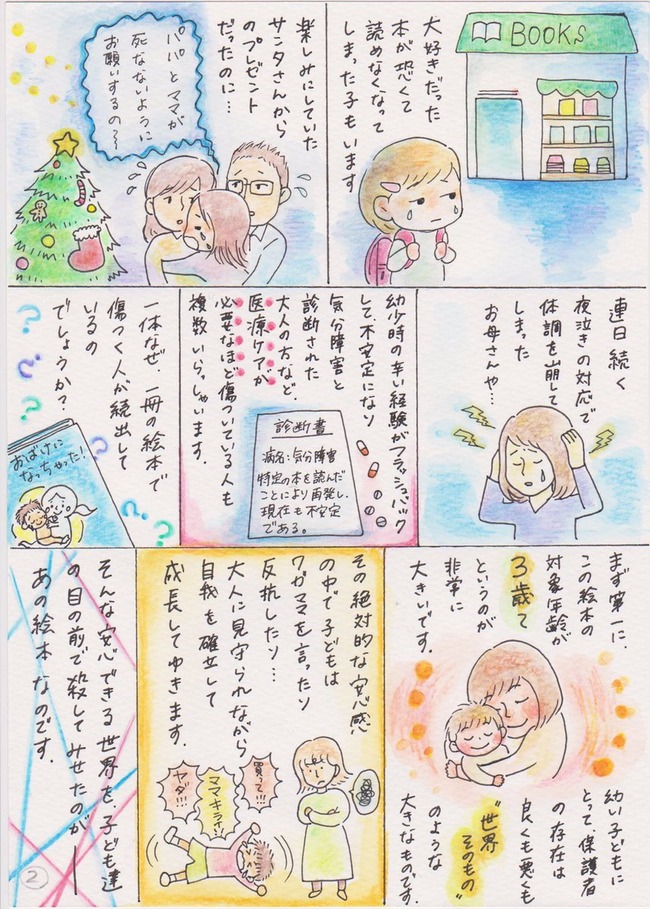 BOOKS
大好きだった
本が恐くて
読めなくなって
しまった子もいます
楽しみにしていた
サンタさんから
のプレゼント
だったのに…
パパとママが
死なないように
お願いするの〜
連日続く
夜泣きの対応で
体調を崩して
しまった
お母さんや…
幼少時の辛い経験がフラッシュバック
して、不安定になり
気分障害と
診断された
大人の方など、
医療ケアが
必要なほど傷ついている人も
複数いらっしゃいます。
診断書
病名:気分障害
特定の本を読んだ
ことにより再発し、
現在も不安定
である。
一体なぜ、一冊の絵本で
傷つく人が続出して
いるの
でしょうか?
おばけに
なっちゃった!
まず第一に、
この絵本の
対象年齢が
3歳〜
というのが
非常に
大きいです。
幼い子どもに
とって、保護者
の存在は
良くも悪くも
"世界
そのもの"
のような
大きなものです。
その絶対的な安心感
の中で子どもは
ワガママを言ったり
反抗したり…
大人に見守られながら
自我を確立して
成長してゆきます。
買って!!!
ママキライ!!
ヤダ!!!
そんな安心できる世界を、子ども達
の目の前で殺してみせたのが―
あの絵本なのです。
2